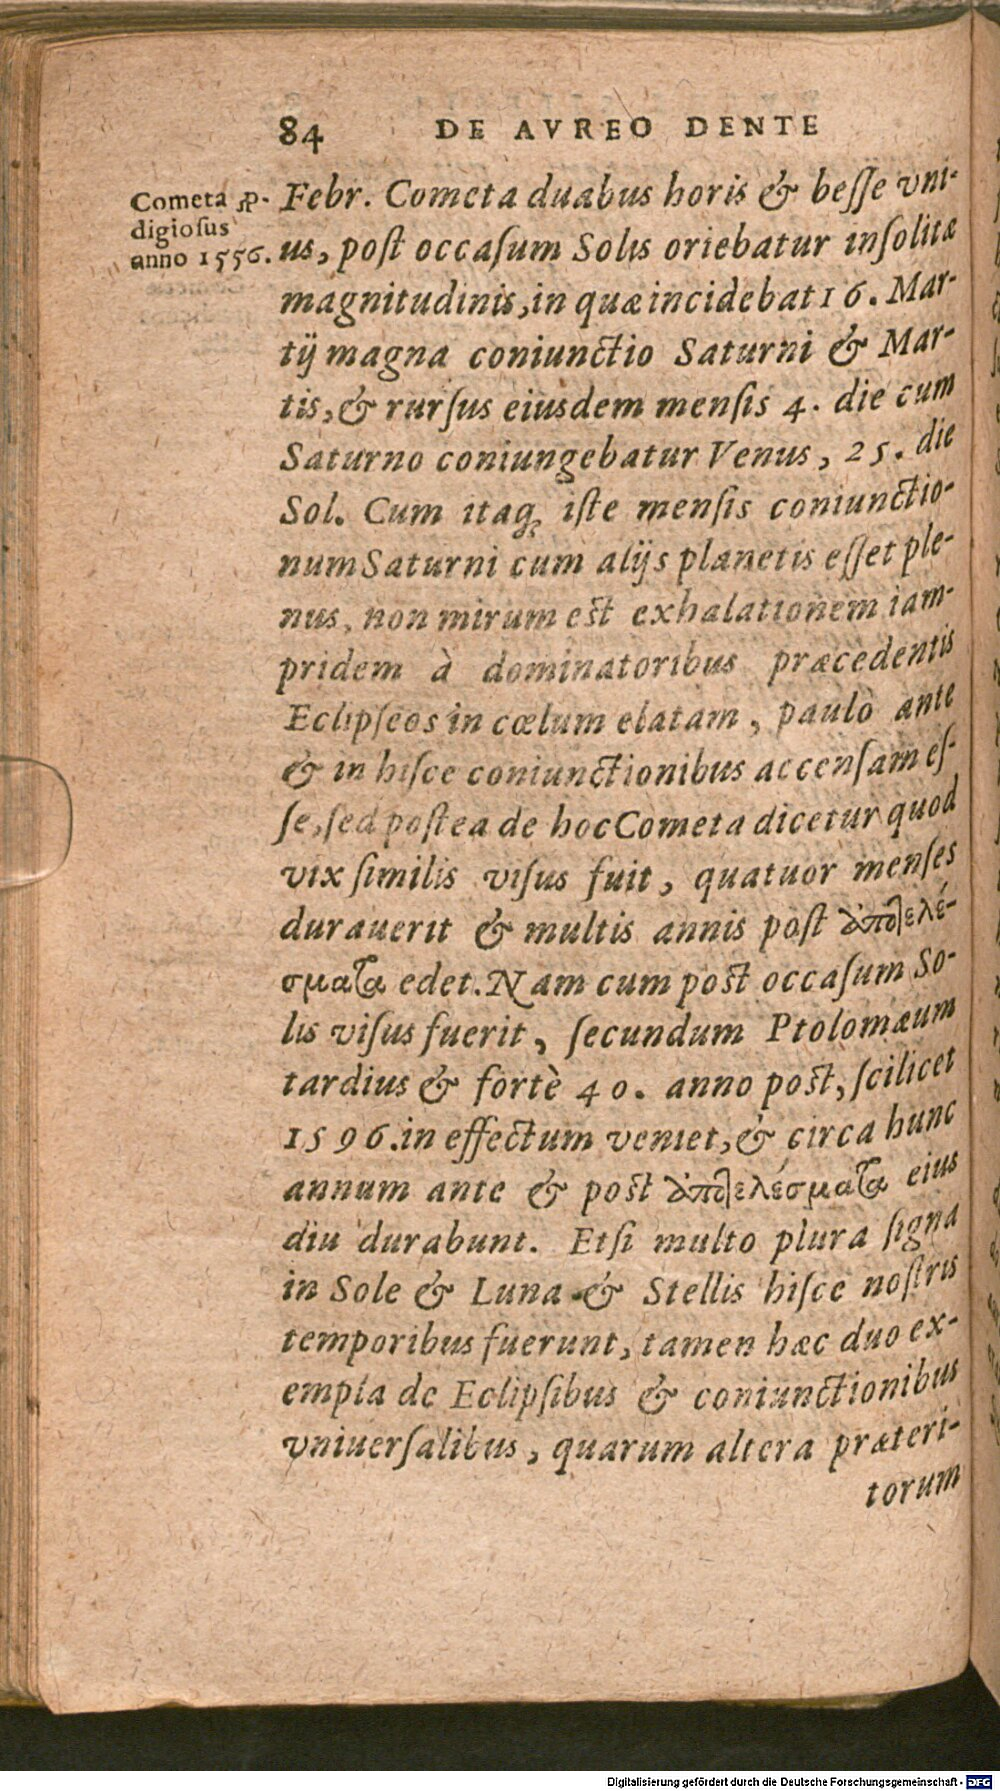 84 DE AVREO DENTE
Cometa ꝓ-
digiosus
anno 1556.
Febr. Cometa duabus horis & beſſe vni-
us, poſt occaſum Solis oriebatur inſolitæ
magnitudinis, in quæ incidebat 16. Mar-
tij magna coniunctio Saturni & Mar-
tis, & rurſus eiusdem menſis 4. die cum
Saturno coniungebatur Venus, 25. die
Sol. Cum itaq; iſte menſis coniunctio-
num Saturni cum alijs planetis eſſet ple-
nus, non mirum eſt exhalationem iam-
pridem à dominatoribus præcedentis
Eclipſeos in cœlum elatam, paulò ante
& in hiſce coniunctionibus accenſam eſ-
ſe, ſed poſtea de hoc Cometa dicetur quod
vix ſimilis viſus fuit, quatuor menſes
durauerit & multis annis poſt ἀποτελέ-
σματα edet. Nam cum poſt occaſum So-
lis viſus fuerit, ſecundum Ptolomæum
tardius & fortè 40. anno poſt, ſcilicet
1596. in effectum veniet, & circa hunc
annum ante & poſt ἀποτελέσματα eius
diu durabunt. Etſi multo plura ſigna
in Sole & Luna & Stellis hiſce noſtris
temporibus fuerunt, tamen hæc duo ex-
empla de Eclipſibus & coniunctionibus
vniuerſalibus, quarum altera præteri-
torum
Digitalisierung gefördert durch die Deutsche Forschungsgemeinschaft - DFG